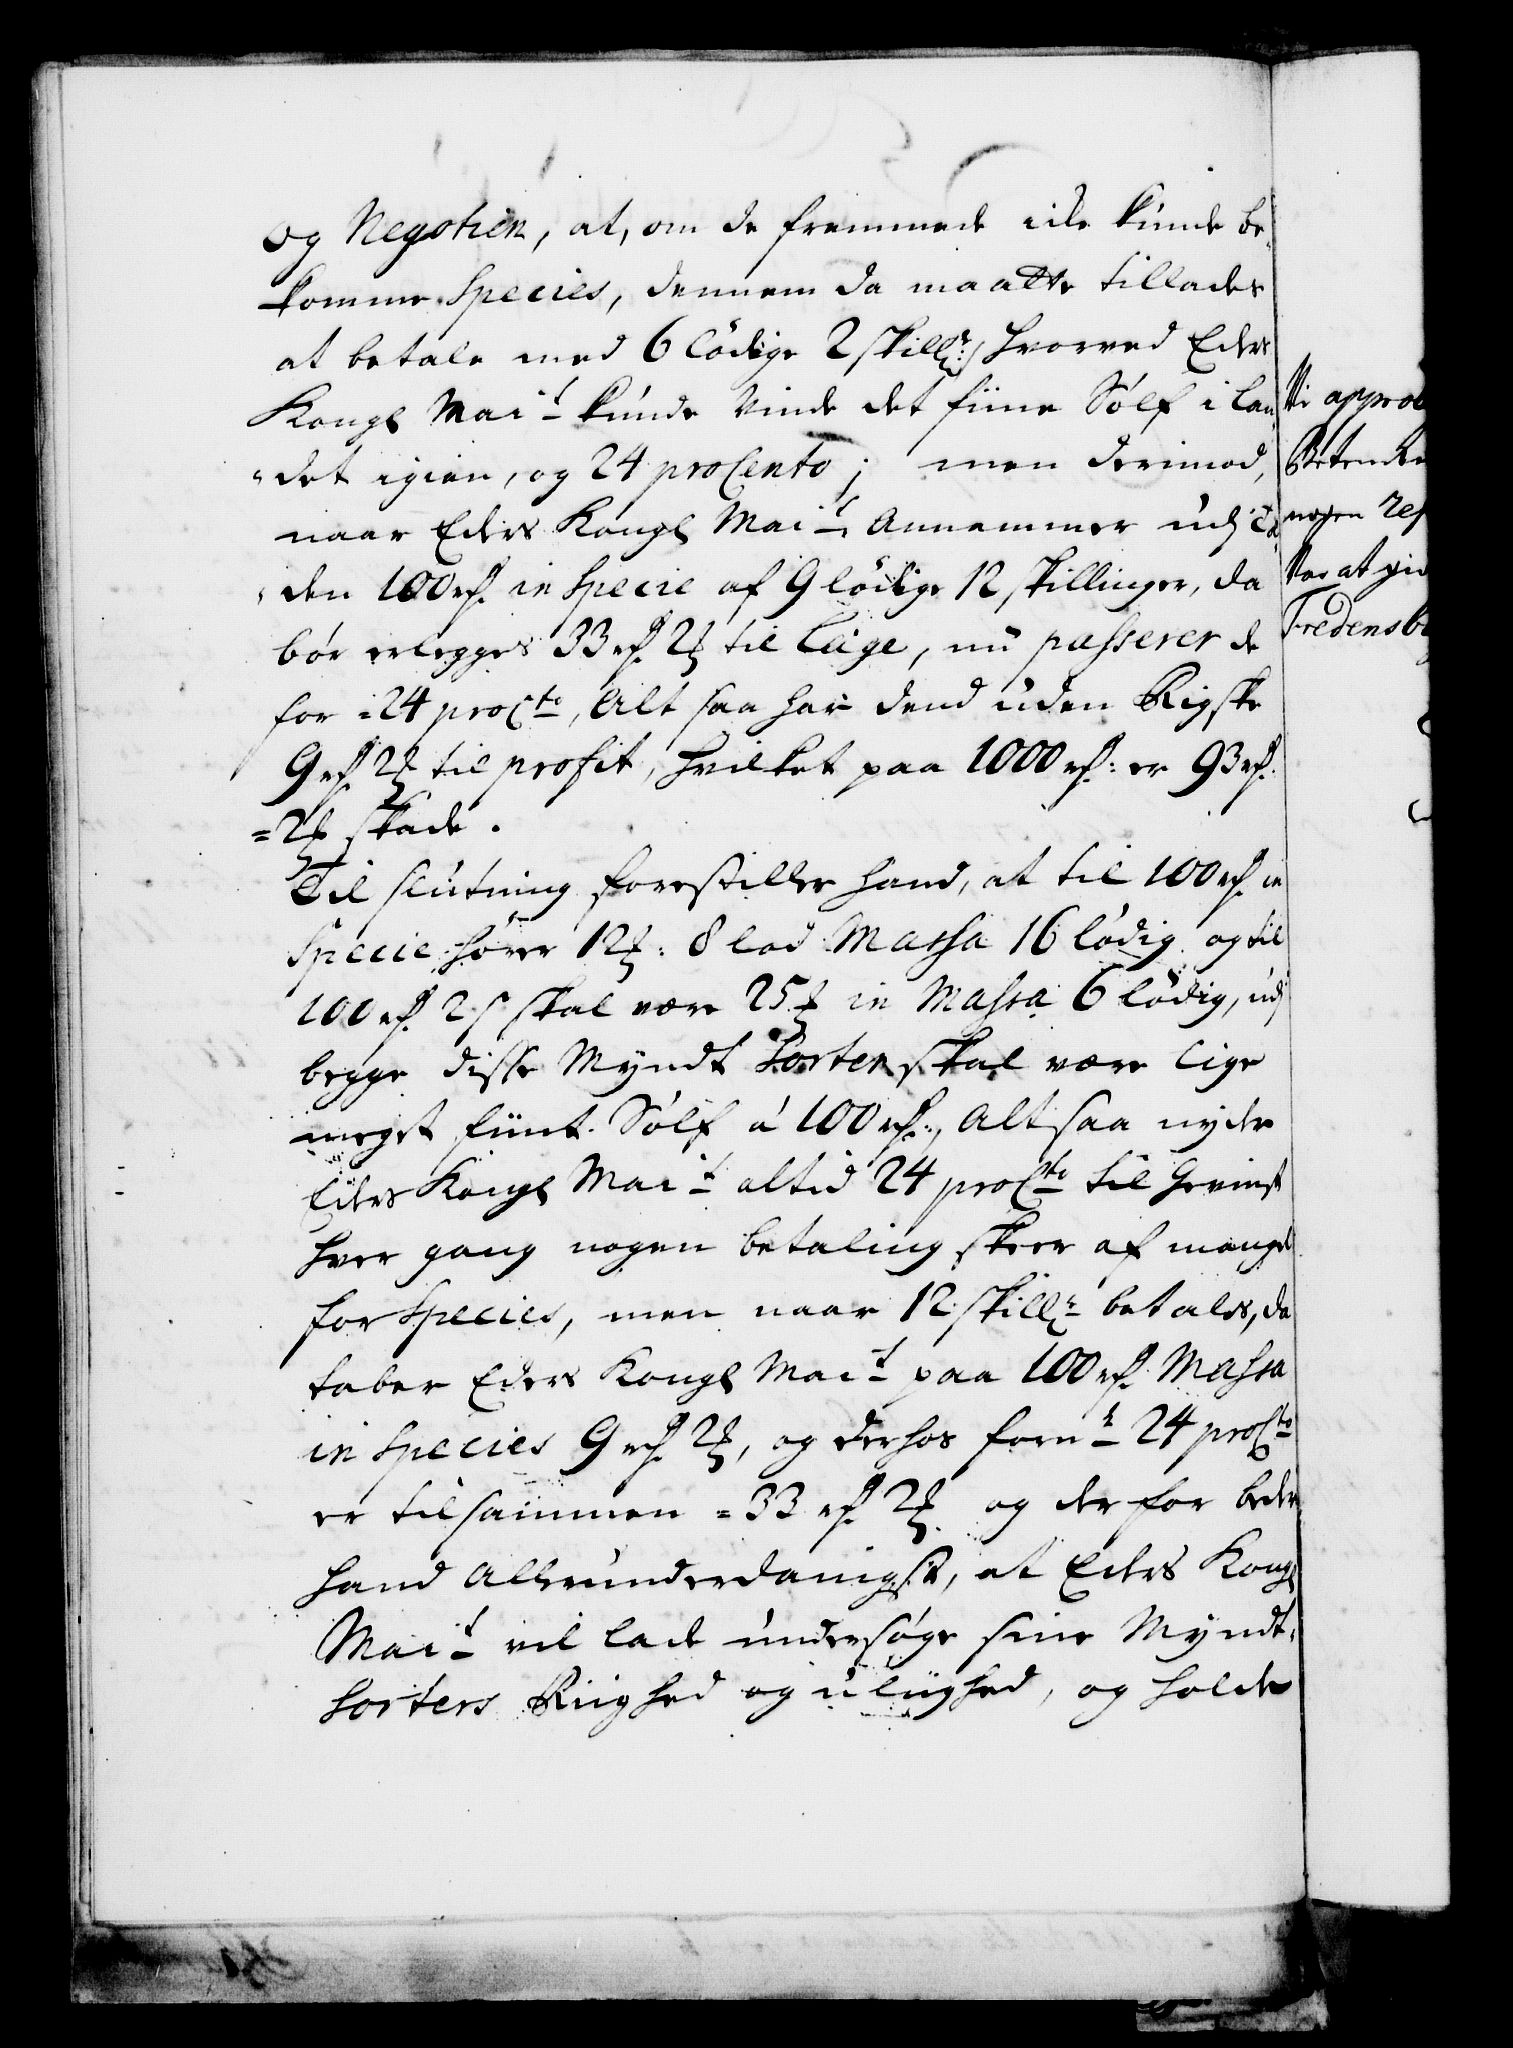 og Negotien, at, om de fremmede icke kunde be-
komme Species, dennem da maatte tillades
at betale med 6 lödige 2 skill:r/ hvorved Eders
Kongl Mai:t kunde vinde det fiine Sölf i lan-
det igien, og 24 proCento; men derimod,
naar Eders Kongl Mai:t Annammer udj
den 100 rd. in Specie af 9 lödige 12 skillinger, da
bör erlegges 33 rd. 2 ℔ til Laige, nu passerer de
for 24 proC:to, Alt saa har dend uden Rigske
9 rd. 2 ℔ til profit, hvilket paa 1000 rd: er 93 rd.
2 ℔ skade.
Til slutning forestiller hand, at til 100 rd. in
Specie hörer 12 ℔: 8 lod Massa 16 lödig og til
100 rd. 2 s skal være 25 ℔ in Massa 6 lödig, udj
begge disse Myndt Sorten skal være lige
meget fiint Sölf á 100 rd:, Alt saa nyder
Eders Kongl Mai:t altid 24 proC:to til Gevinst
hver gang nogen betaling skeer af mangel
for Species, men naar 12 skill:r betales, da
taber Eders Kongl Mai:t paa 100 rd. Massa
in Species 9 rd. 2 ℔, og derhos forn:te 24 proC:to
er tilsammen 33 rd. 2 ℔. og der for beder
hand Allerunderdanigst, at Eders Kongl
Mai:t vil lade undersöge sine Myndt-
Sorters Riighed og uliighed, og holde
Vi approb
Betenck
nogen Res
Vor at giv
Fredensb